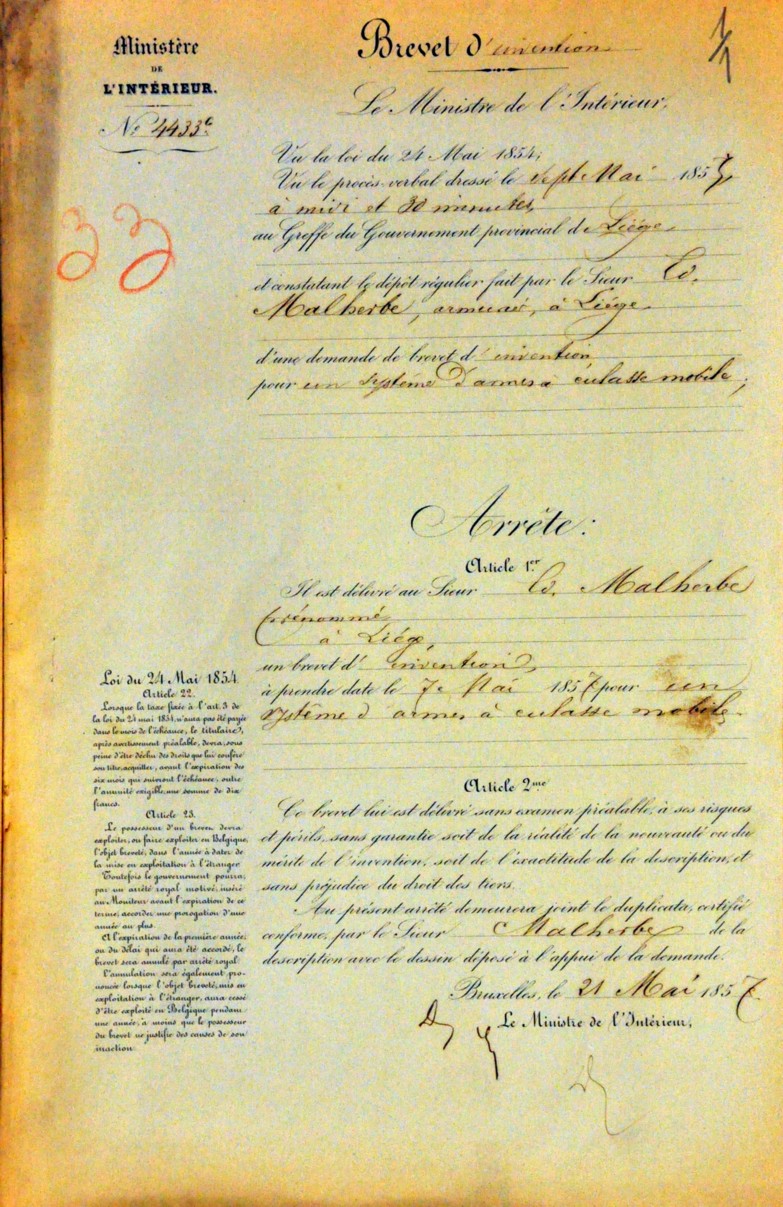 Ministère
DE
L'INTÉRIEUR.
No 4433
Brevet d'invention
1/1
33
Le Ministre de l'Intérieur,
Vu la loi du 24 Mai 1854;
Vu le procès-verbal dressé le sept Mai 1857,
à midi et 30 minutes
au Greffe du Gouvernement provincial de Liége
et constatant le dépôt régulier fait par le Sieur
Malherbe, armurier, à Liége
d'une demande de brevet d'invention
pour un système d'armes à culasse mobile;
Arrête:
Article 1er
Il est délivré au Sieur Malherbe
prénommé
à Liége,
un brevet d'invention,
à prendre date le 7 Mai 1857 pour un
système d'armes à culasse mobile.
Article 2me
Ce brevet lui est délivré sans examen préalable, à ses risques
et périls, sans garantie soit de la réalité de la nouveauté ou du
mérite de l'invention, soit de l'exactitude de la description, et
sans préjudice du droit des tiers.
Au présent arrêté demeurera joint le duplicata, certifié
conforme, par le Sieur Malherbe de la
description avec le dessin déposé à l'appui de la demande.
Bruxelles, le 21 Mai 1857
Le Ministre de l'Intérieur,
Loi du 24 Mai 1854.
Article 22.
Lorsque la taxe fixée à l'art. 3 de
la loi du 24 mai 1854, n'aura pas été payée
dans le mois de l'échéance, le titulaire,
après avertissement préalable, devra, sous
peine d'être déchu des droits que lui confère
son titre, acquitter, avant l'expiration des
six mois qui suivront l'échéance, outre
l'annuité exigible, une somme de dix
francs.
Article 23.
Le possesseur d'un brevet devra
exploiter, ou faire exploiter en Belgique,
l'objet breveté, dans l'année à dater de
la mise en exploitation à l'étranger.
Toutefois le gouvernement pourra,
par un arrêté royal motivé, inséré
au Moniteur avant l'expiration de ce
terme, accorder une prorogation d'une
année au plus.
A l'expiration de la première année,
ou du délai qui aura été accordé, le
brevet sera annulé par arrêté royal.
L'annulation sera également pro-
noncée lorsque l'objet breveté, mis en
exploitation à l'étranger, aura cessé
d'être exploité en Belgique pendant
une année, à moins que le possesseur
du brevet ne justifie des causes de son
inaction.